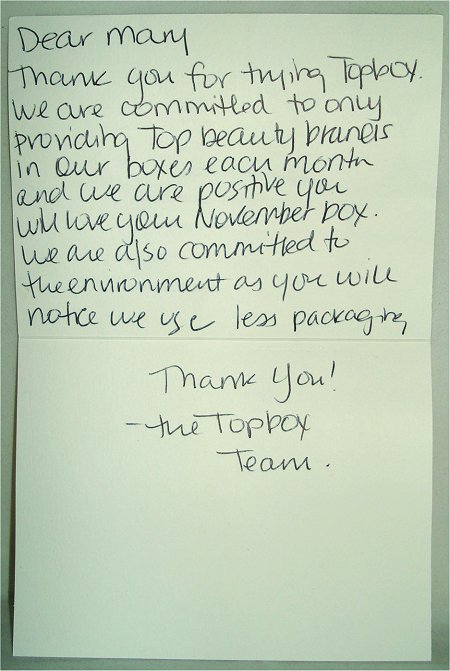 Dear Mary
Thank you for trying Topbox.
We are committed to only
providing Top beauty brands
in our boxes each month
and we are positive you
will love your November box.
We are also committed to
the environment as you will
notice we use less packaging
Thank You!
- the Topbox
Team.